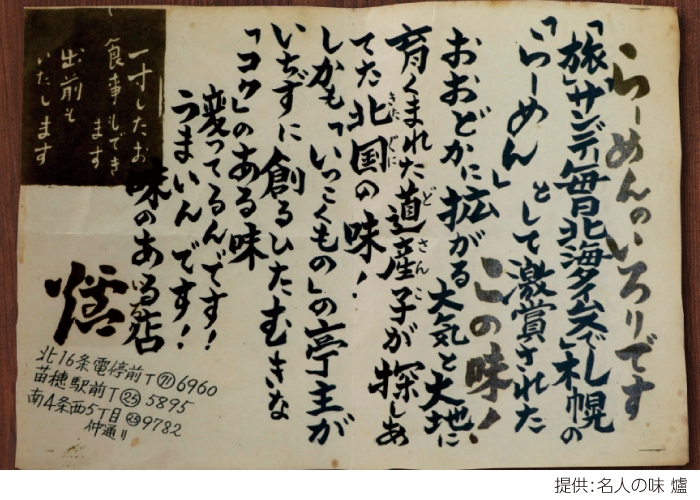 らーめんのいろりです
「旅」「サンデー毎日」「北海タイムス」でし札幌の
「らーめん」として激賞された
この味！
おおどかに拡がる大気と大地に
育くまれた道産子が探しあ
てた北国の味！
しかも「いっこくもの」の亭主が
いちずに創るひたむきな
「コク」のある味
変ってるんです！
うまいんです！
味のある店
爐
一寸したお
食事もでき
ます
出前も
いたします
北16条電停前T(71)6960
苗穂駅前T(25)5895
南4条西5丁目(23)9782
仲通り
提供：名人の味 爐